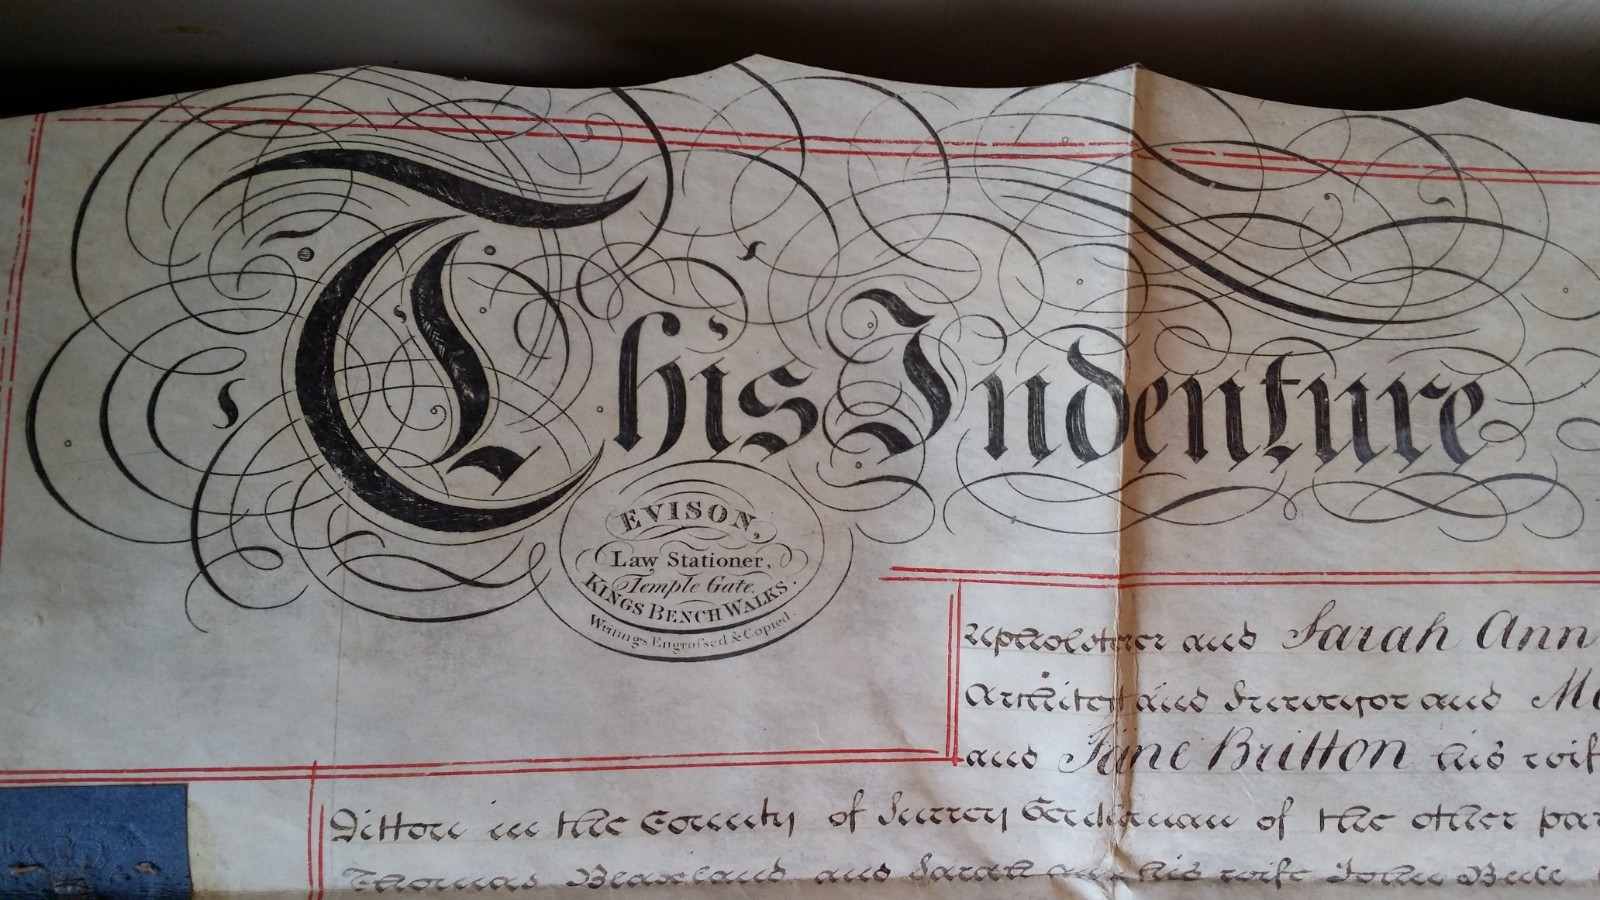 This Indenture
EVISON,
Law Stationer,
Temple Gate,
KINGS BENCH WALKS.
Writings Engrossed & Copied.
Upholsterer and Sarah Ann
Architect and Surveyor and
and Jane Britton his wif
Ditton in the County of Surrey Gentleman of the other par
Thomas and Sarah his wife John